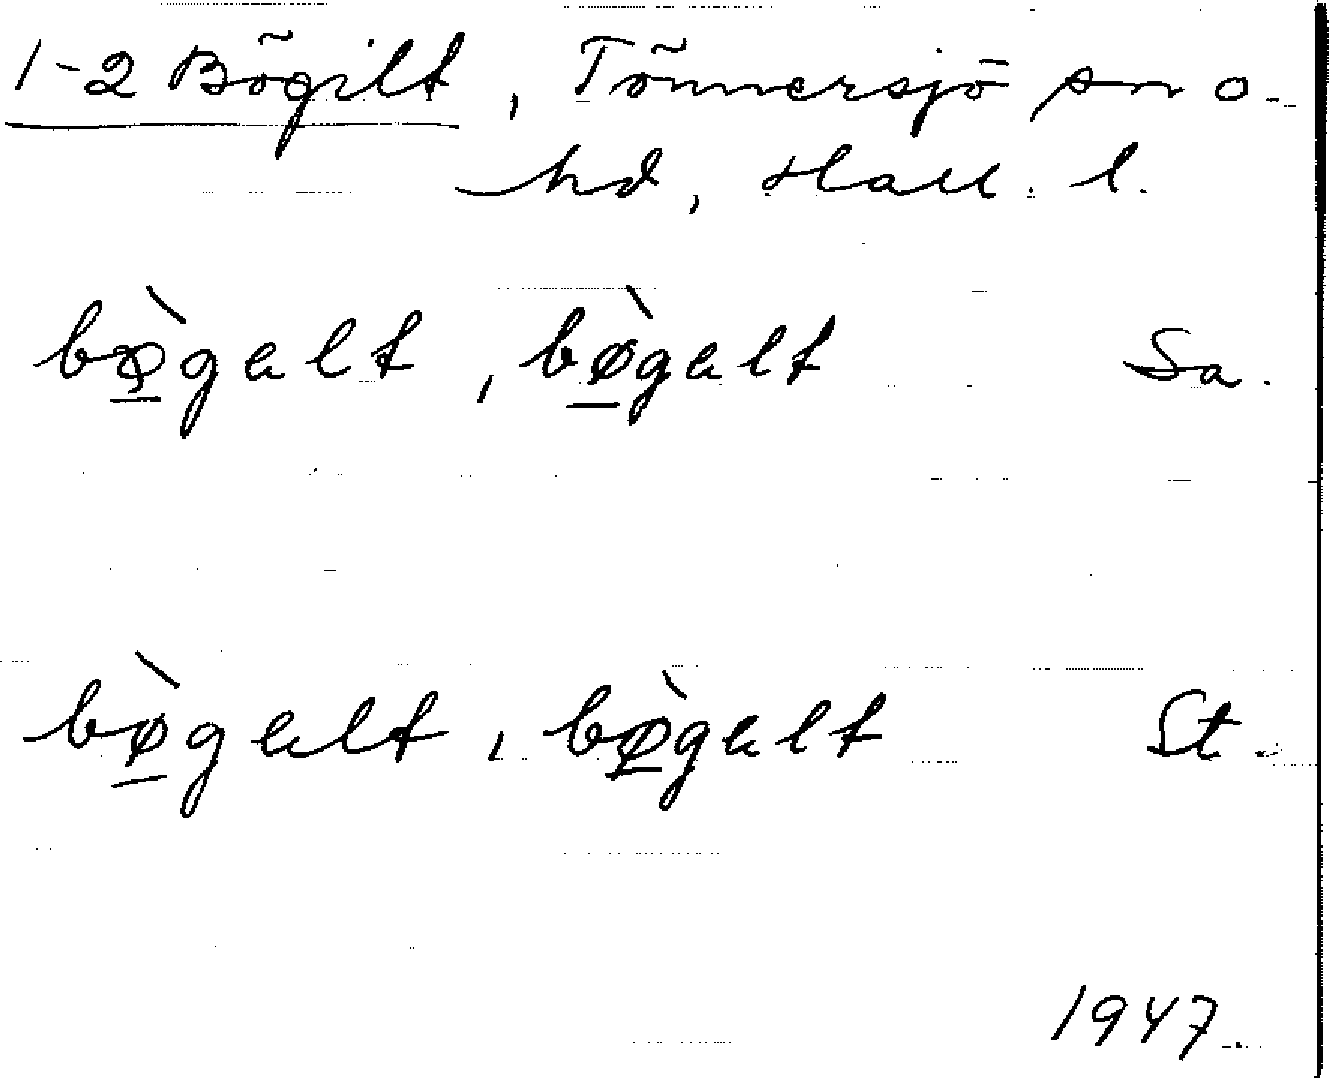 1-2 Bögilt, Tönnersjö sn o.
hd, Hall. l.
bø̀galt, bø̀galt Sa.
bø̀galt, bø̀galt St.
1947